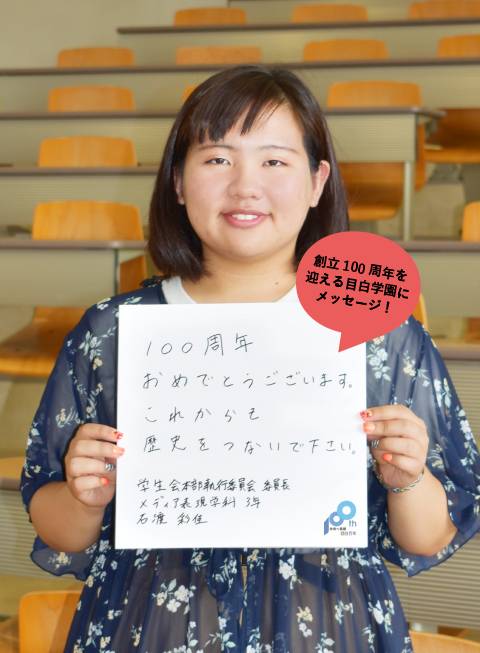 創立100周年を
迎える目白学園に
メッセージ！
100周年
おめでとうございます。
これからも
歴史をつないで下さい。
学生会本部執行委員会 委員長
メディア表現学科 3年
石渡 彩佳
100th